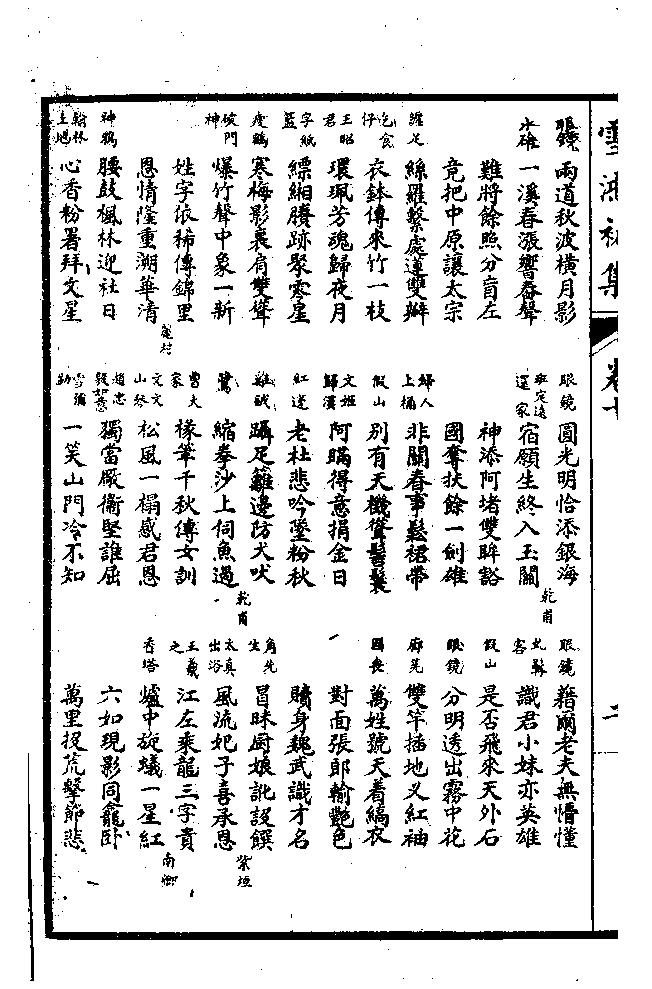 雪鴻初集 卷十
眼鏡 兩道秋波橫月影
水碓 一溪春漲響舂聲
難將餘照分盲左
竟把中原讓太宗
纏足 絲羅繫處連雙瓣
乞食仔 衣鉢傳來竹一枝
王昭君 環珮芳魂歸夜月
字紙籃 縹緗賸跡聚零星
瘦鶴 寒梅影裏肩雙聳
破門神 爆竹聲中象一新
姓字依稀傳錦里
恩情隆重溯華清 菴村
神鴉 腰鼓楓林迎社日
翰林土地 心香粉署拜文星
眼鏡 圓光明恰添銀海
班定遠還家 宿願生終入玉關 乾甫
神添阿堵雙眸豁
國奪扶餘一劍雄
婦人上桶 非關春事鬆裙帶
假山 別有天機聳髻鬟
文姬歸漢 阿瞞得意捐金日
紅蓮 老杜悲吟墜粉秋
雞賊 躡足籬邊防犬吠
鷺 縮拳沙上伺魚過 乾甫
曹大家 椽筆千秋傳女訓
文文山琴 松風一榻感君恩
趙忠毅如意 獨當厰衞堅誰屈
雪彌勒 一笑山門冷不知
眼鏡 藉爾老夫無懵懂
虬髯客 識君小妹亦英雄
假山 是否飛來天外石
眼鏡 分明透出霧中花
廁籌 雙竿插地叉紅袖
國喪 萬姓號天着縞衣
對面張郎輸艷色
贖身魏武識才名
角先生 冒昧厨娘訛設饌
太真出浴 風流妃子喜承恩 紫垣
王羲之 江左乘龍三字貴
香塔 爐中旋蟻一星紅 南卿
六如現影同龕卧
萬里投荒擊節悲